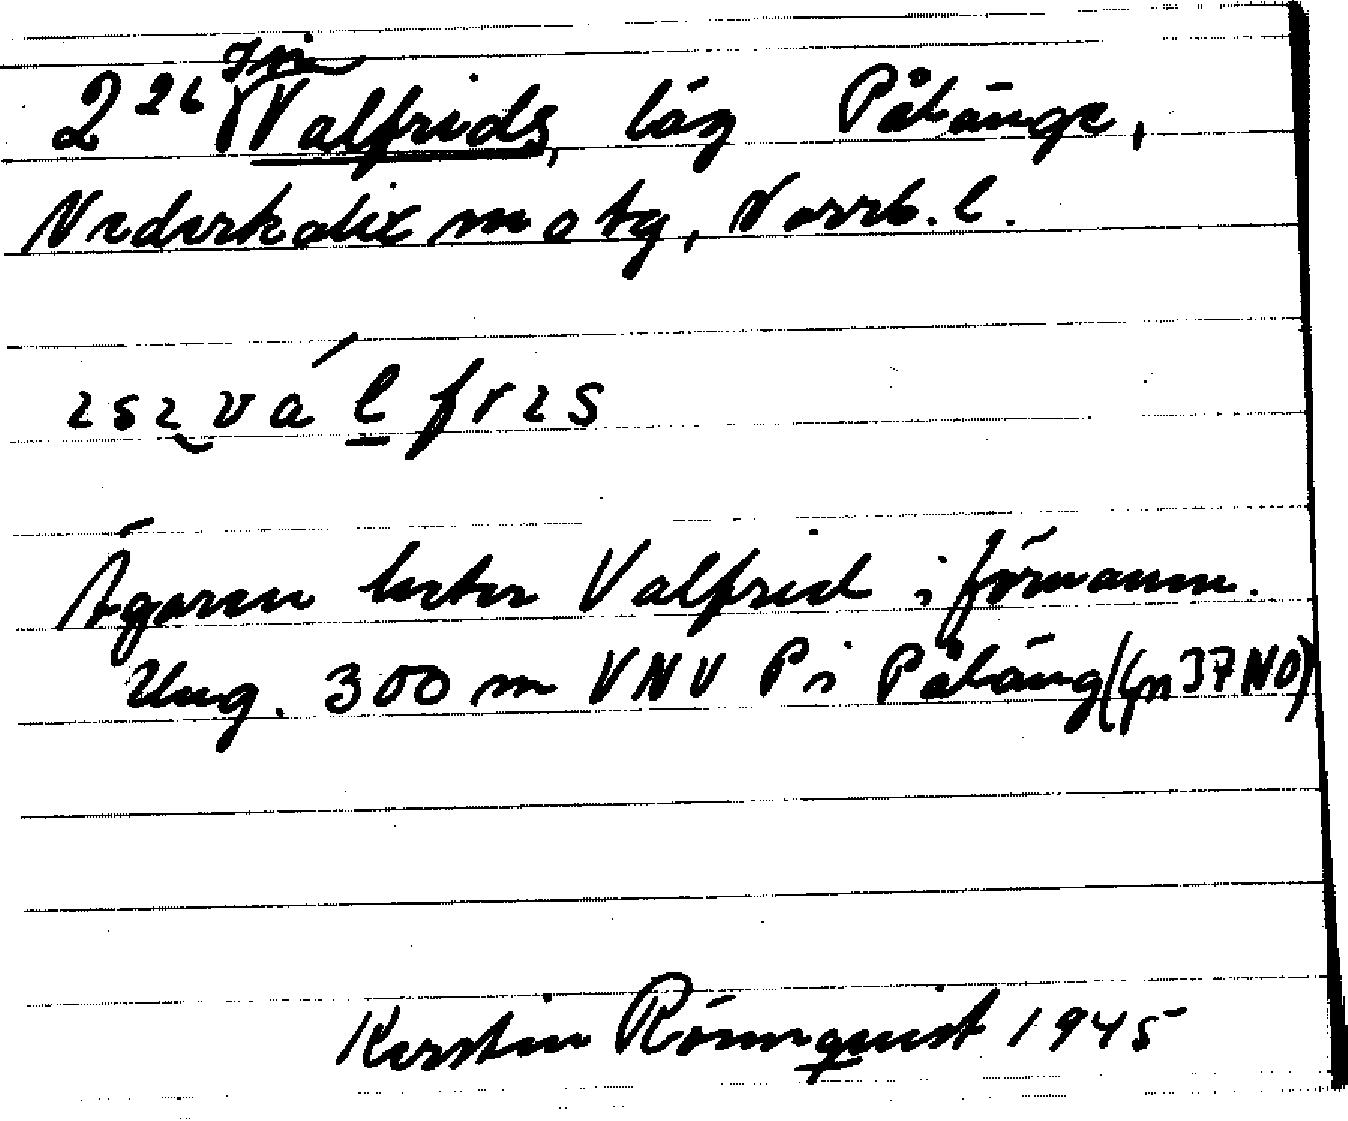 2 26 Jni Valfrids, läg Pålänge,
Nederkalix m o tg, Norrb. l.
ɩsɩ vá l frɩs
Ägaren heter Valfrid i förnamn.
Ung. 300 m VNV P i Påläng (Gn 37 NO)
Kerstin Rönnquist 1945